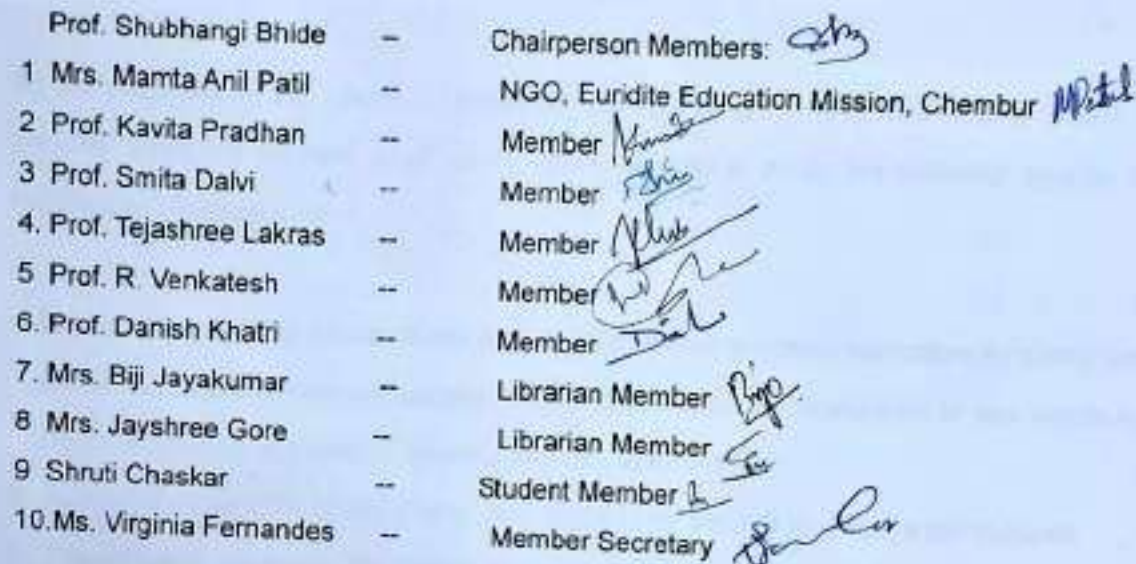 Prof. Shubhangi Bhide -- Chairperson Members:
1 Mrs. Mamta Anil Patil -- NGO, Euridite Education Mission, Chembur MPatil
2 Prof. Kavita Pradhan -- Member
3 Prof. Smita Dalvi -- Member
4. Prof. Tejashree Lakras -- Member
5 Prof. R. Venkatesh -- Member
6. Prof. Danish Khatri -- Member
7. Mrs. Biji Jayakumar -- Librarian Member
8 Mrs. Jayshree Gore -- Librarian Member
9 Shruti Chaskar -- Student Member
10.Ms. Virginia Fernandes -- Member Secretary